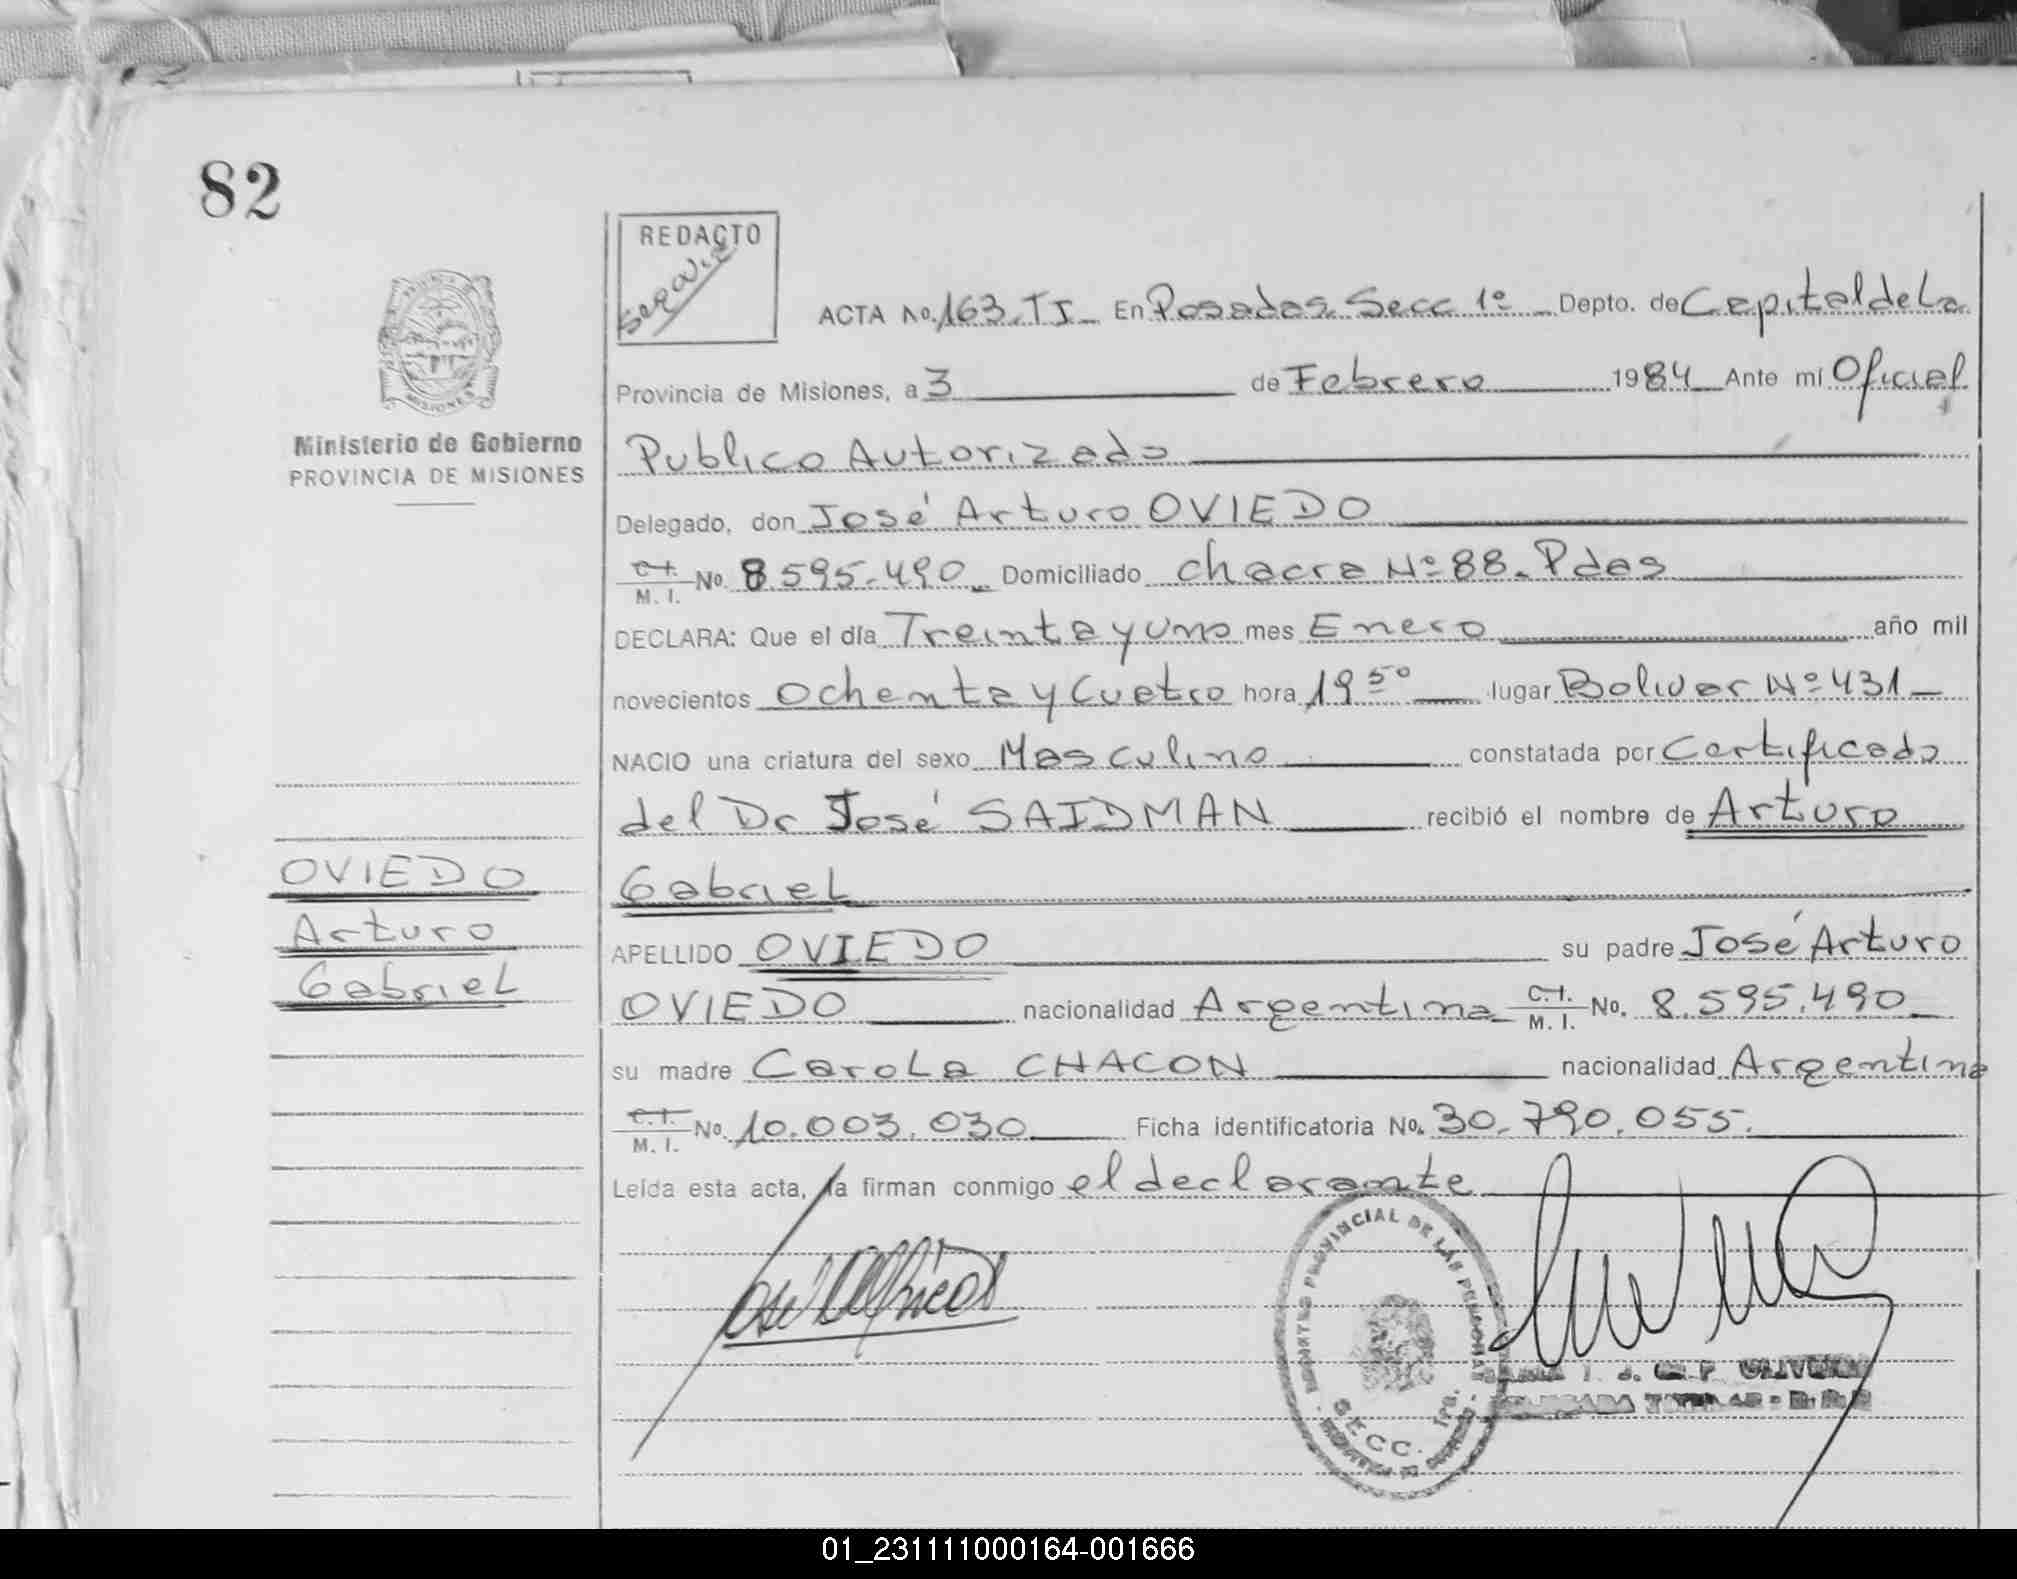 82
REDACTO
MISIONES
Ministerio de Gobierno
PROVINCIA DE MISIONES
ACTA No. 163. TI En Posadas Secc 1º Depto. de Capital de La
Provincia de Misiones, a 3 de Febrero 1984 Ante mí Oficial
Publico Autorizado
Delegado, don José Arturo OVIEDO
C.I. M. I. No. 8.595.490 Domiciliado chacra Nº 88. Pdas
DECLARA: Que el día Treinta y uno mes Enero año mil
novecientos Ochenta y Cuatro hora 19 50 lugar Bolivar Nº 431
NACIO una criatura del sexo Masculino constatada por Certificado
del Dr José SAIDMAN recibió el nombre de Arturo
Gabriel
APELLIDO OVIEDO su padre José Arturo
OVIEDO nacionalidad Argentina C.I. M. I. No. 8.595.490
su madre Carola CHACON nacionalidad Argentina
C.I. M. I. No. 10.003.030 Ficha identificatoria No. 30.790.055.
Leída esta acta, la firman conmigo el declarante
OVIEDO
Arturo
Gabriel
PROVINCIAL DE LAS PERSONAS
SECC. 1ra.
01_231111000164-001666